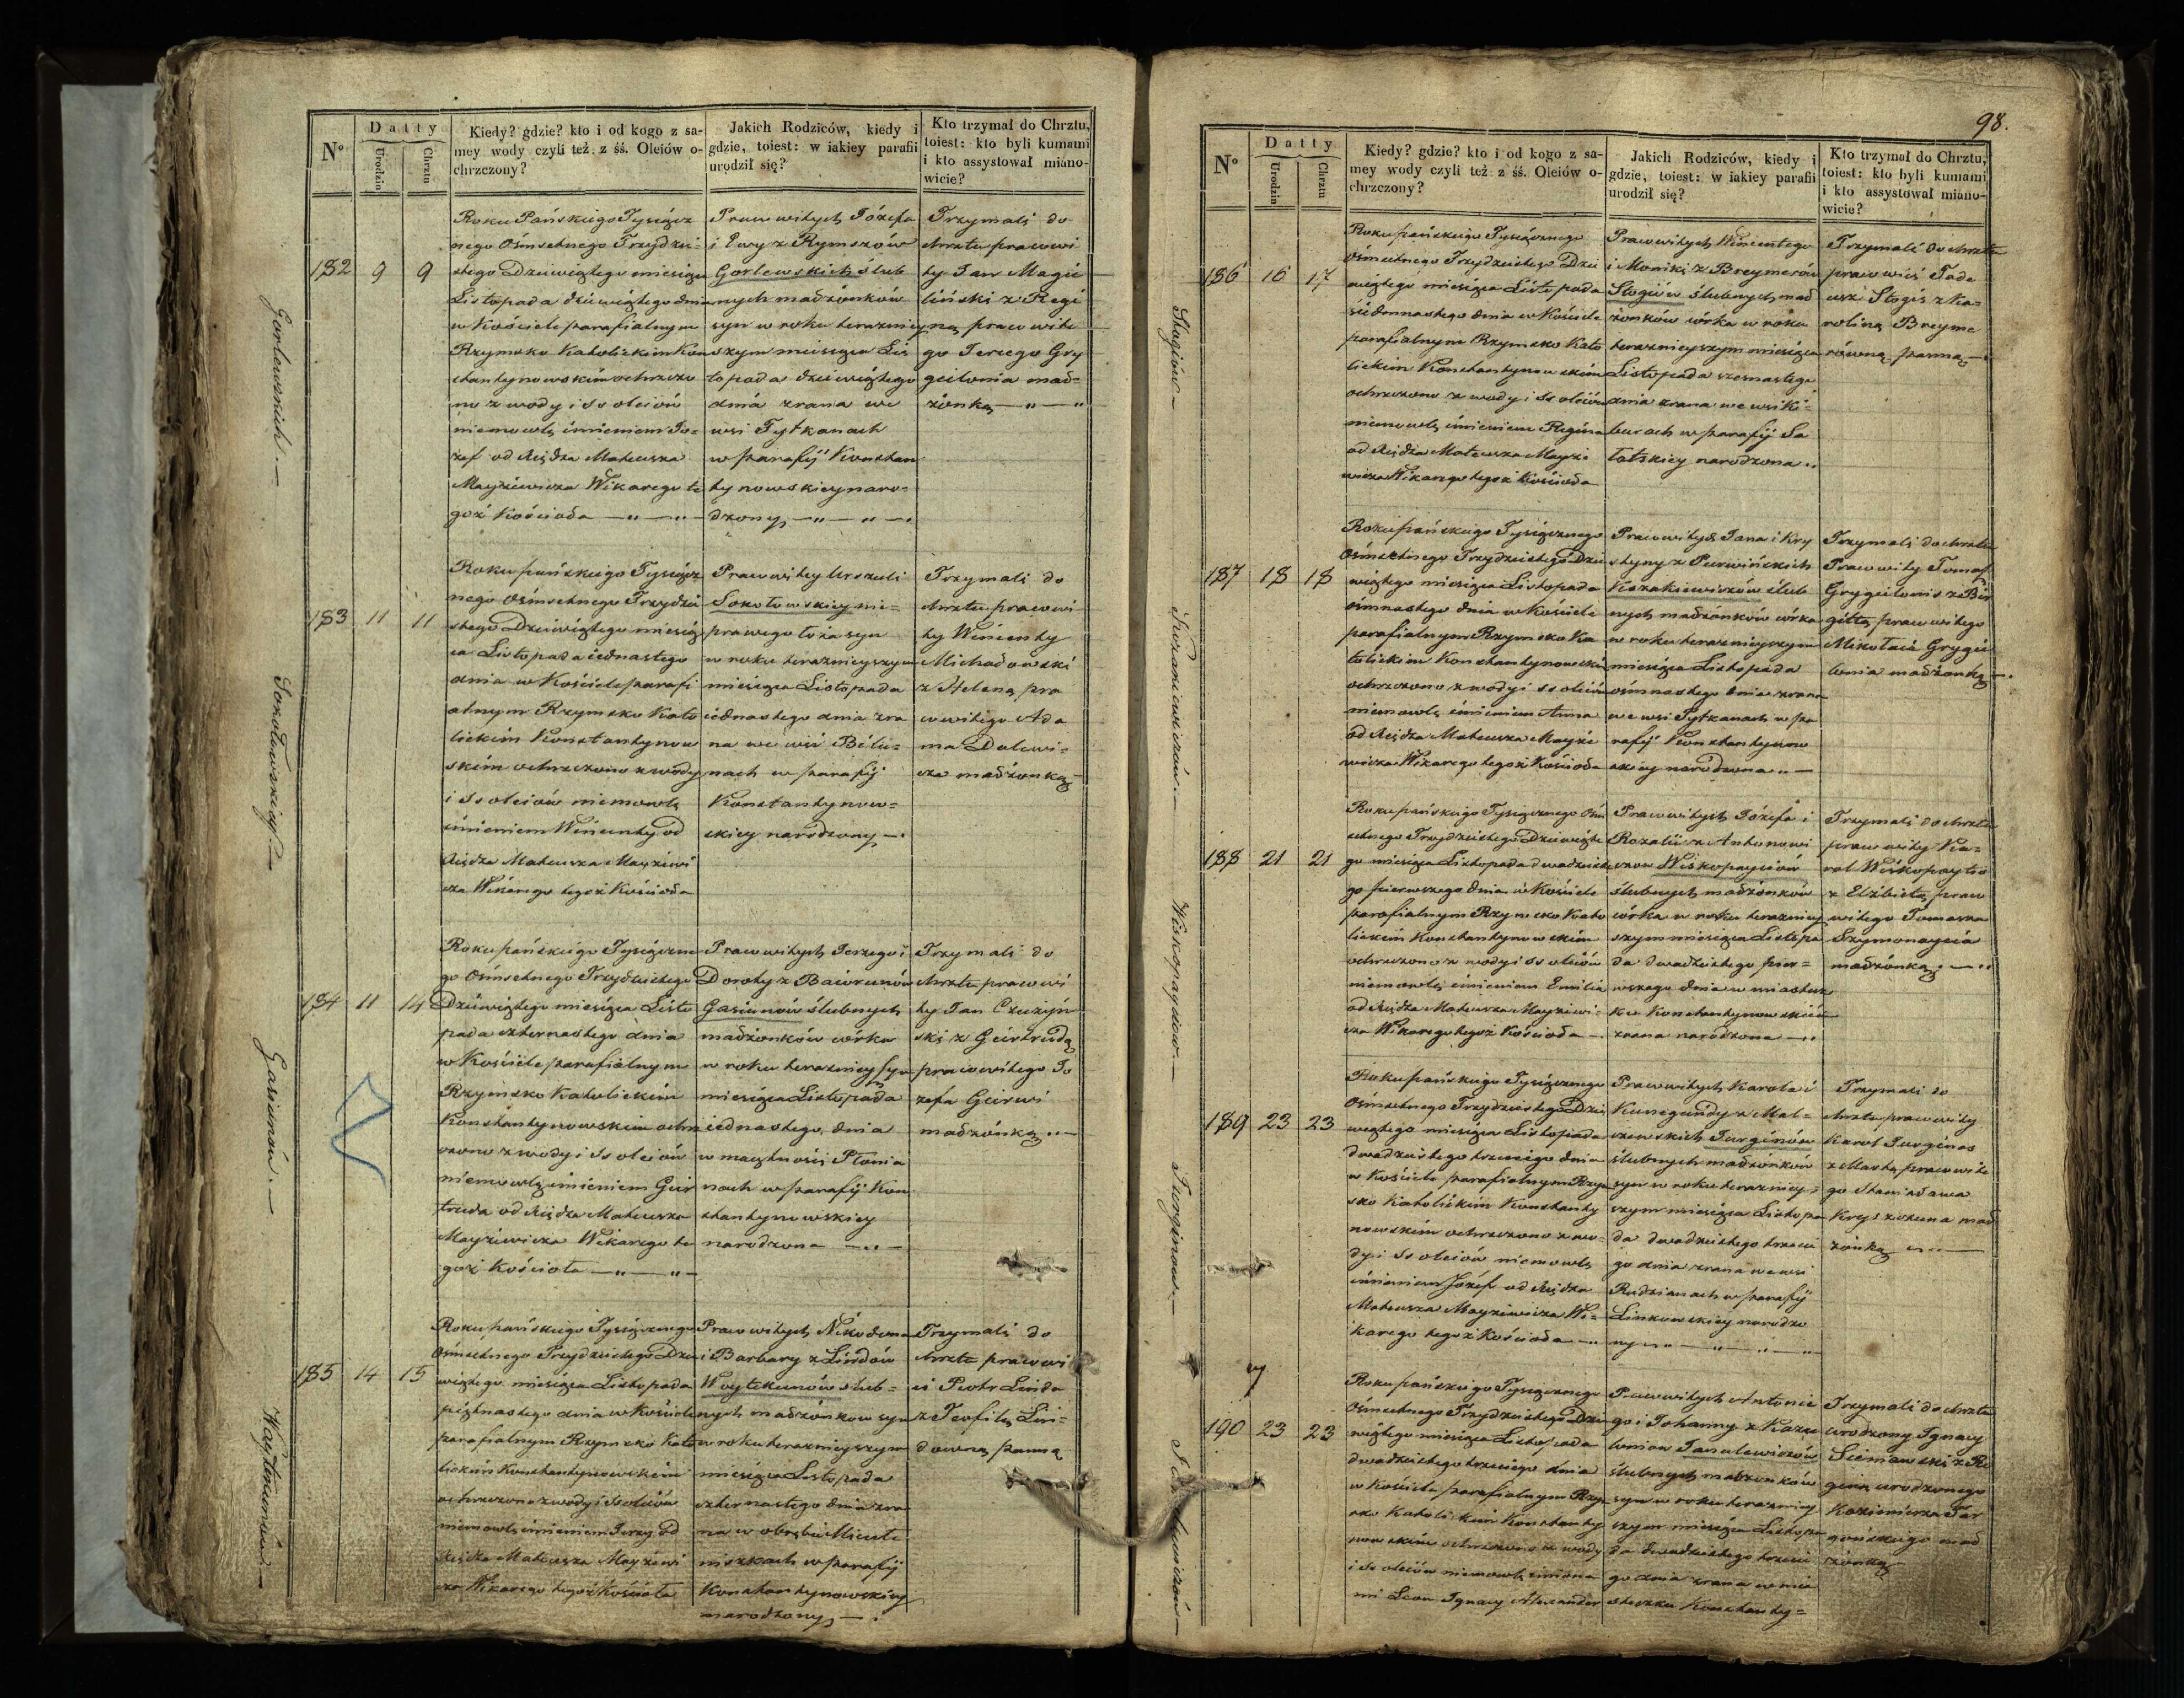 N°
Datty
Urodzin
Chrztu
Kiedy? gdzie? kto i od kogo z sa-
mey wody czyli też z śś. Oleiów o-
chrzczony?
Jakich Rodziców, kiedy i
gdzie, toiest: w iakiey parafii
urodził się?
Kto trzymał do Chrztu,
toiest: kto byli kumami
i kto assystował miano-
wicie?
Gorlewskich.—
182
9
9
Roku Pańskiego Tysiącz
nego Ośmsetnego Trzydzie-
stego Dziewiątego miesiąca
Listopada dziewiątego dnia
w Kościele parafialnym
Rzymsko Katolickim Kon
stantynowskim ochrzczo
no z wody i SS oleiów
niemowlę imieniem Jó-
zef od Xiędza Mateusza
Mayziewicza Wikarego te
goż Kościoła
Prawowitych Józefa
i Ewy z Rymszów
Gorlewskich ślub
nych małżonków
syn w roku teraźniey
szym miesiąca Lis
topada dziewiątego
dnia zrana we
wsi Tytkanach
w parafij Konstan
tynowskiey naro-
dzony
Trzymali do
chrztu prawowi
ty Jan Magie
liński z Regi
ną prawowite
go Jerzego Gry
gielonia mał-
żonką
Sokołowskiey.—
183
11
11
Roku pańskiego Tysiącz
nego Ośmsetnego Trzydzie
stego Dziewiątego miesią
ca Listopada iednastego
dnia w Kościele parafi
alnym Rzymsko Kato
lickim Konstantynow
skim ochrzczono z wody
i SS oleiów niemowlę
imieniem Wincenty od
Xiędza Mateusza Mayziewi
cza Wikarego tegoż Kościoła
Prawowitey Urszuli
Sokołowskiey nie-
prawego łoża syn
w roku teraźnieyszym
miesiąca Listopada
iednastego dnia zra
na we wsi Bilu-
nach w parafij
Konstantynow-
skiey narodzony
Trzymali do
chrztu prawowi
ty Wincenty
Michałowski
z Heleną pra
wowitego Ada
ma Dulewi-
cza małżonką
Gasiunów.—
184
11
14
Roku pańskiego Tysiączne
go Ośmsetnego Trzydziestego
Dziewiątego miesiąca Listo
pada czternastego dnia
w Kościele parafialnym
Rzymsko Katolickim
Konstantynowskim ochrz
czono z wody i SS oleiów
niemowlę imieniem Geir
truda od Xiędza Mateusza
Mayziewicza Wikarego te
goż Kościoła
Prawowitych Jerzego i
Doroty z Baiorunów
Gasiunów ślubnych
małżonków córka
w roku teraźnieyszym
miesiąca Listopada
iednastego dnia
w maiętności Płonia
nach w parafij Kon
stantynowskiey
narodzona
Trzymali do
chrztu prawowi
ty Jan Czużyń
ski z Geirtrudą
prawowitego Jó
zefa Geirwi
małżonką
Woytekunów.—
185
14
15
Roku pańskiego Tysiącznego
Ośmsetnego Trzydziestego Dzie
wiątego miesiąca Listopada
piętnastego dnia w Kościele
parafialnym Rzymsko Kato
lickim Konstantynowskim
ochrzczono z wody i SS oleiów
niemowlę imieniem Jerzy od
Xiędza Mateusza Mayziewi
cza Wikarego tegoż Kościoła
Prawowitych Nikodema
i Barbary z Lindów
Woytekunów ślub-
nych małżonków syn
w roku teraźnieyszym
miesiąca Listopada
czternastego dnia zra
na w obrębie Miculi
niszkach w parafij
Konstantynowskiey
narodzony
Trzymali do
chrztu prawowi
ci Piotr Linda
z Teofilą Lin-
downą panną
98.
N°
Datty
Urodzin
Chrztu
Kiedy? gdzie? kto i od kogo z sa-
mey wody czyli też z śś. Oleiów o-
chrzczony?
Jakich Rodziców, kiedy i
gdzie, toiest: w iakiey parafii
urodził się?
Kto trzymał do Chrztu,
toiest: kto byli kumami
i kto assystował miano-
wicie?
Stogiów.—
186
16
17
Roku pańskiego Tysiącznego
Ośmsetnego Trzydziestego Dzie
wiątego miesiąca Listopada
siedmnastego dnia w Kościele
parafialnym Rzymsko Kato
lickim Konstantynowskim
ochrzczono z wody i SS oleiów
niemowlę imieniem Regina
od Xiędza Mateusza Mayzie
wicza Wikarego tegoż Kościoła
Prawowitych Wincentego
i Moniki z Breymerów
Stogiów ślubnych mał
żonków córka w roku
teraźnieyszym miesiąca
Listopada szesnastego
dnia zrana we wsi Ki-
burach w parafij Sa
łatskiey narodzona
Trzymali do chrztu
prawowici Tade
usz Stogis z Ka-
roliną Breyme
równą panną
Kozakiewiczów.
187
18
18
Roku pańskiego Tysiącznego
Ośmsetnego Trzydziestego Dzie
wiątego miesiąca Listopada
ośmnastego dnia w Kościele
parafialnym Rzymsko Ka
tolickim Konstantynowskim
ochrzczono z wody i SS oleiów
niemowlę imieniem Anna
od Xiędza Mateusza Mayzie
wicza Wikarego tegoż Kościoła
Prawowitych Jana i Kry
styny z Purwińskich
Kozakiewiczów ślub
nych małżonków córka
w roku teraźnieyszym
miesiąca Listopada
ośmnastego dnia zrana
we wsi Tytkanach w pa
rafij Konstantynow
skiey narodzona
Trzymali do chrztu
Prawowity Tomasz
Grygielonis z Bir
gittą prawowitego
Mikołaia Grygie
lonia małżonką
Wiskopayciów.—
188
21
21
Roku pańskiego Tysiącznego Ośm
setnego Trzydziestego Dziewiąte
go miesiąca Listopada dwudzieste
go pierwszego dnia w Kościele
parafialnym Rzymsko Kato
lickim Konstantynowskim
ochrzczono z wody i SS oleiów
niemowlę imieniem Emilia
od Xiędza Mateusza Mayziewi-
cza Wikarego tegoż Kościoła
Prawowitych Józefa i
Rozalii z Antonowi
czow Wiskopayciów
ślubnych małżonków
córka w roku teraźniey
szym miesiąca Listopa
da dwudziestego pier-
wszego dnia w miastecz
ku Konstantynowskim
zrana narodzona
Trzymali do chrztu
prawowity Ka-
rol Wiskopaytis
z Elżbietą prawo
witego Tomasza
Szymonaycia
małżonką
Jurginów.—
189
23
23
Roku pańskiego Tysiącznego
Ośmsetnego Trzydziestego Dzie
wiątego miesiąca Listopada
dwudziestego trzeciego dnia
w Kościele parafialnym Rzym
sko Katolickim Konstanty
nowskim ochrzczono z wo-
dy i SS oleiów niemowlę
imieniem Józef od Xiędza
Mateusza Mayziewicza Wi-
karego tegoż Kościoła
Prawowitych Karola i
Kunegundy z Mal-
czewskich Jurginów
ślubnych małżonków
syn w roku teraźniey-
szym miesiąca Listopa
da dwudziestego trzecie
go dnia zrana we wsi
Rudzianach w parafij
Linkowskiey narodzo
ny
Trzymali do
chrztu prawowity
Karol Jurginas
z Martą prawowite
go Stanisława
Kryszziuna mał
żonką
190
23
23
Roku pańskiego Tysiącznego
Ośmsetnego Trzydziestego Dzie
wiątego miesiąca Listopada
dwudziestego trzeciego dnia
w Kościele parafialnym Rzym
sko Katolickim Konstanty
nowskim ochrzczono z wody
i SS oleiów niemowlę imiona
mi Leon Ignacy Alexander
Prawowitych Antonie
go i Johanny z
Janulewiczów
ślubnych małżonków
syn w roku teraźniey
szym miesiąca Listopa
da dwudziestego trzecie
go dnia zrana w mia
steczku Konstanty-
Trzymali do chrztu
urodzony Ignacy
Siemiawski z Re
giną urodzonego
Kazimierza
mał
żonką